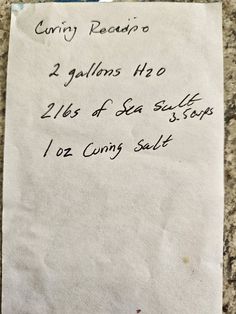 Curing Receipo
2 gallons H2O
2 lbs of Sea Salt
3.5 cups
1 oz Curing Salt